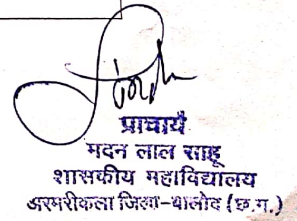 प्राचार्य
मदन लाल साहू
शासकीय महाविद्यालय
अरमरीकला जिला-बालोद (छ.ग.)